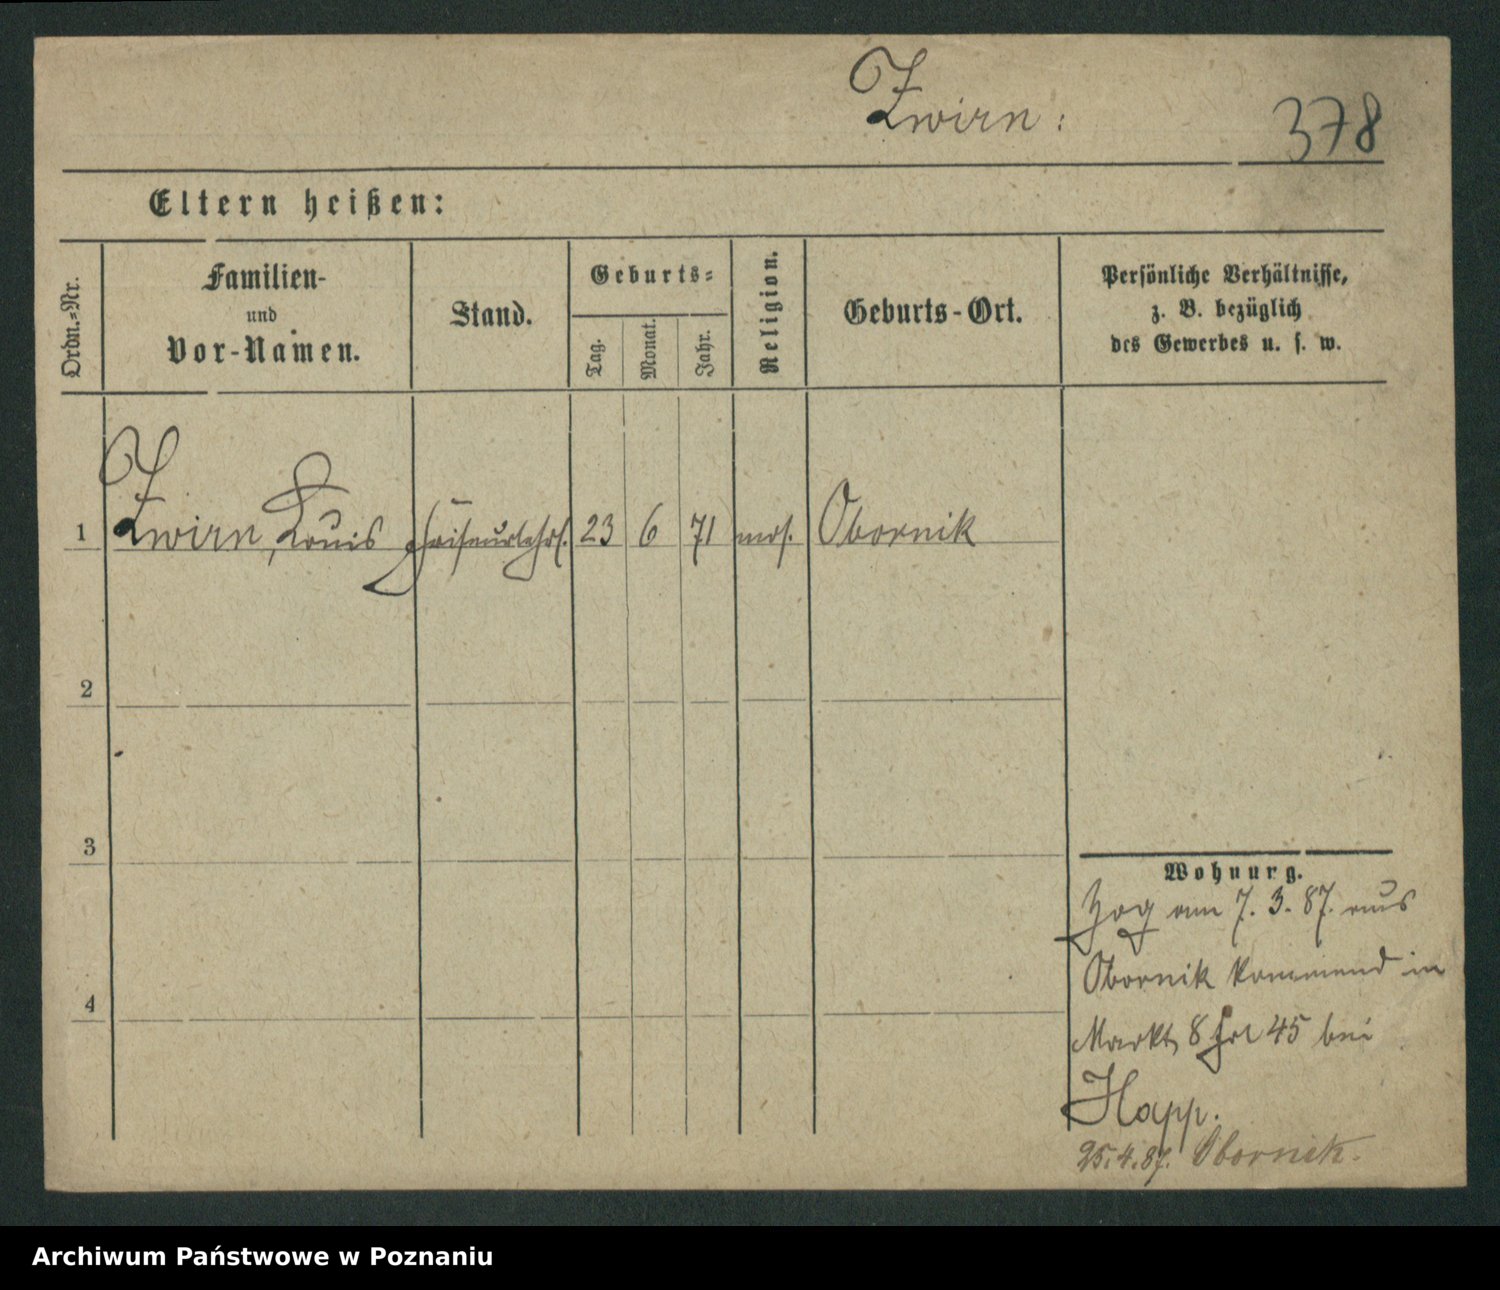 Zwirn:
378
Eltern heißen:
Ordn.=Nr.
Familien-
und
Vor-Namen.
Stand.
Geburts=
Tag.
Monat.
Jahr.
Religion.
Geburts-Ort.
Persönliche Verhältnisse,
z. B. bezüglich
des Gewerbes u. s. w.
1 Zwirn, Louis Friseurlehrl. 23 6 71 mos. Obornik
2
3
4
Wohnung.
Zog am 7. 3. 87. aus
Obornik kommend in
Markt 8 45 bei
Happ.
25.4.87. Obornik.
Archiwum Państwowe w Poznaniu